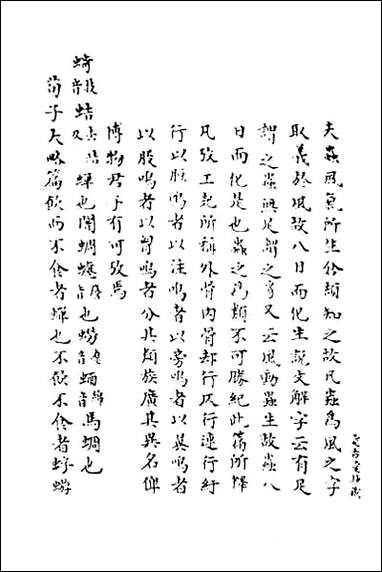 夫蟲風氣所生倉頡知之故凡蟲爲風之字
取義於風故八日而化生說文解字云有足
謂之蟲無足謂之豸又云風動蟲生故蟲八
日而化是也蟲之爲類不可勝紀此篇所釋
凡攷工記所稱外骨内骨却行仄行連行紆
行以脰鳴者以注鳴者以旁鳴者以翼鳴者
以股鳴者以胷鳴者分其類族廣其異名俾
博物君子有可攷焉
蛣 蟬也 蜩 也 馬蜩也
荀子大略篇飲而不食者蟬也不飲不食者蜉蝣